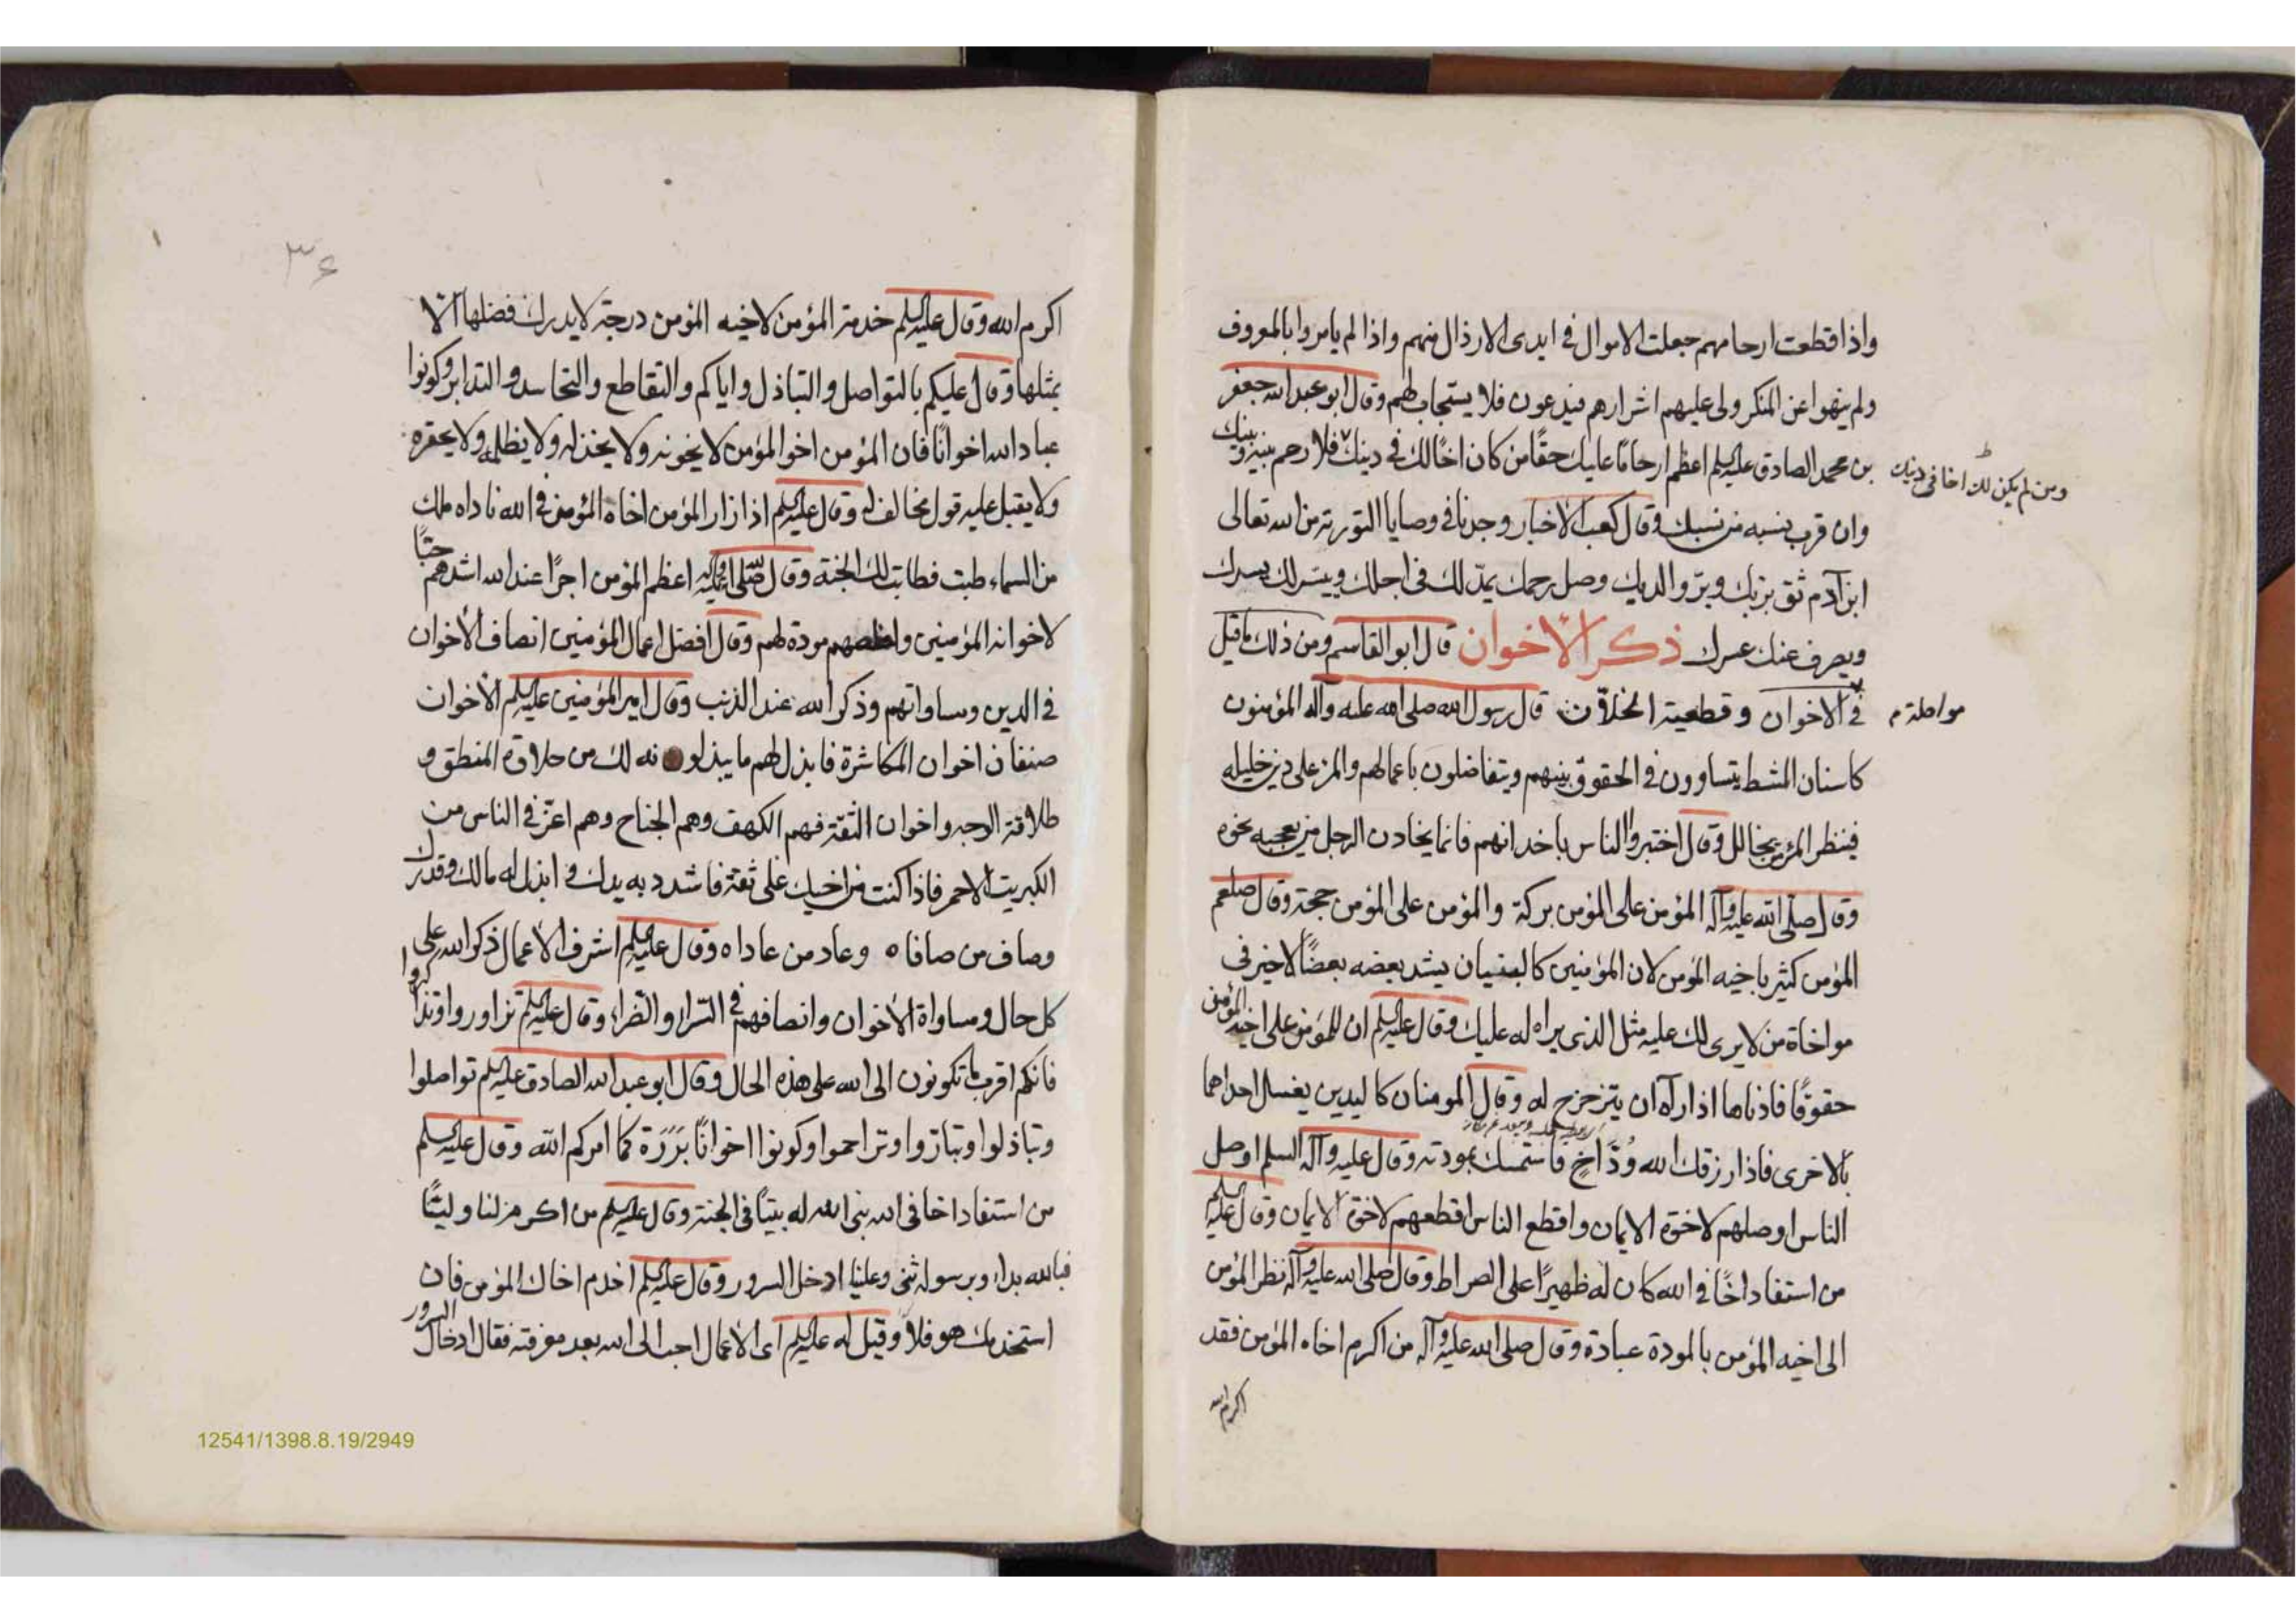 واذا قطعت ارحامهم جعلت الاموال في ايدى الارذال منهم واذا لم يامروا بالمعروف
ولم ينهوا عن المنكر ولى عليهم اشرارهم فيدعون فلا يستجاب لهم وقال ابو عبد الله جعفر
بن محمد الصادق عليه السلم اعظم ارحامًا عليك حقًا من كان اخًا لك في دينك فلا رحم بينه وبينك
ومن لم يكن لك اخا فى دينك
وان قرب نسبه من نسبك وقال كعب الاخبار وجدنا في وصايا التورية من الله تعالى
ابن آدم ثق بربك وبرّ والديك وصل رحمك يمدّ لك في اجلك وييسر لك يسرك
ويصرف عنك عسرك ذكر الأخوان قال ابو القاسم ومن ذلك ما قيل
في الاخوان وقطعية الخلاّن قال رسول الله صلى الله عليه وآله المؤمنون
مواصلة
كاسنان المشط يتساوون في الحقوق بينهم ويتفاضلون باعمالهم والمرء على دين خليله
فينظر المرء بمن يخالل وقال اختبروا الناس باخدانهم فانما يخادن الرجل من يعجبه نحوه
وقال صلى الله عليه وآله المؤمن على المؤمن بركة والمؤمن على المؤمن حجة وقال صلعم
المؤمن كثير باخيه المؤمن لان المؤمنين كالبنيان يشد بعضه بعضًا لا خير في
مواخاة من لا يرى لك عليه مثل الذى يراه له عليك وقال عليه السلم ان للمؤمن على اخيه المؤمن
حقوقًا فادناها اذا رآه ان يتزحزح له وقال المومنان كاليدين يغسل احداهما
بالاخرى فاذا رزقك الله وُدّ اخٍ فاستمسك بمودته وقال عليه وآله السلم اوصل
الناس اوصلهم لاخوة الايمان واقطع الناس اقطعهم لاخوة الايمان وقال عليه السلم
من استفاد اخًا في الله كان له ظهيرًا على الصراط وقال صلى الله عليه وآله نظر المؤمن
الى اخيه المؤمن بالمودة عبادة وقال صلى الله عليه وآله من اكرم اخاه المؤمن فقد
اكرم الله
٣٤
اكرم الله وقال عليه السلم خدمة المؤمن لاخيه المؤمن درجة لا يدرك فضلها الّا
بمثلها وقال عليكم بالتواصل والتباذل واياكم والتقاطع والتحاسد والتدابر وكونوا
عباد الله اخوانًا فان المؤمن اخو المؤمن لا يخونه ولا يخذله ولا يظلمه ولا يحقره
ولا يقبل عليه قول مخالف له وقال عليه السلم اذا زار المؤمن اخاه المؤمن في الله ناداه ملك
من السماء طبت فطابت لك الجنة وقال صلى الله عليه وآله اعظم المؤمن اجرًا عند الله اشدهم حبًّا
لاخوانه المؤمنين واخلصهم مودة لهم وقال افضل اعمال المؤمنين انصاف الأخوان
في الدين ومساواتهم وذكر الله عند الذنب وقال امير المؤمنين عليه السلم الأخوان
صنفان اخوان المكاشرة فابذل لهم ما يبذلونه لك من حلاوة المنطق و
طلاقة الوجه واخوان الثقة فهم الكهف وهم الجناح وهم اعز في الناس من
الكبريت الاحمر فاذا كنت من اخيك على ثقة فاشدد به يدك و ابذل له مالك وقدرك
وصاف من صافاه وعاد من عاداه وقال عليه السلم اشرف الأعمال ذكر الله على
كل حال ومساواة الأخوان وانصافهم في السّراء والضراء وقال عليه السلم تزاوروا وتذاكروا
فانكم اقرب ما تكونون الى الله على هذه الحال وقال ابو عبد الله الصادق عليه السلم تواصلوا
وتباذلوا وتبارّوا وتراحموا وكونوا اخوانًا بَرَرَة كما امركم الله وقال عليه السلم
من استفاد اخا في الله بنى الله له بيتًا في الجنة وقال عليه السلم من اكرم لنا وليًّا
فبالله بداء وبرسوله ثنى وعلينا ادخل السرور وقال عليه السلم اخدم اخاك المؤمن فان
استخدمك هو فلا وقيل له عليه السلم اى الأعمال احب الى الله بعد معرفته فقال ادخال السرور
12541/1398.8.19/2949